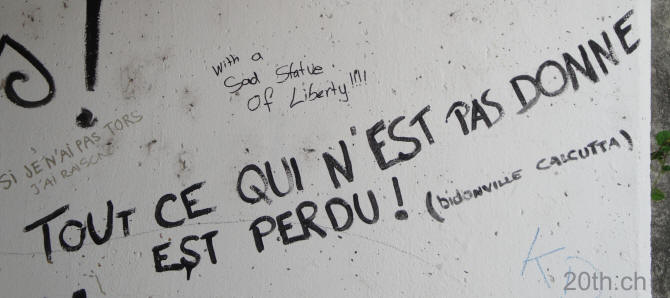 with a
Sad Statue
Of Liberty!!!!
SI JE N'AI PAS TORS
J'AI RAISON
TOUT CE QUI N'EST PAS DONNE
EST PERDU ! (bidonville CALCUTTA)
20th.ch